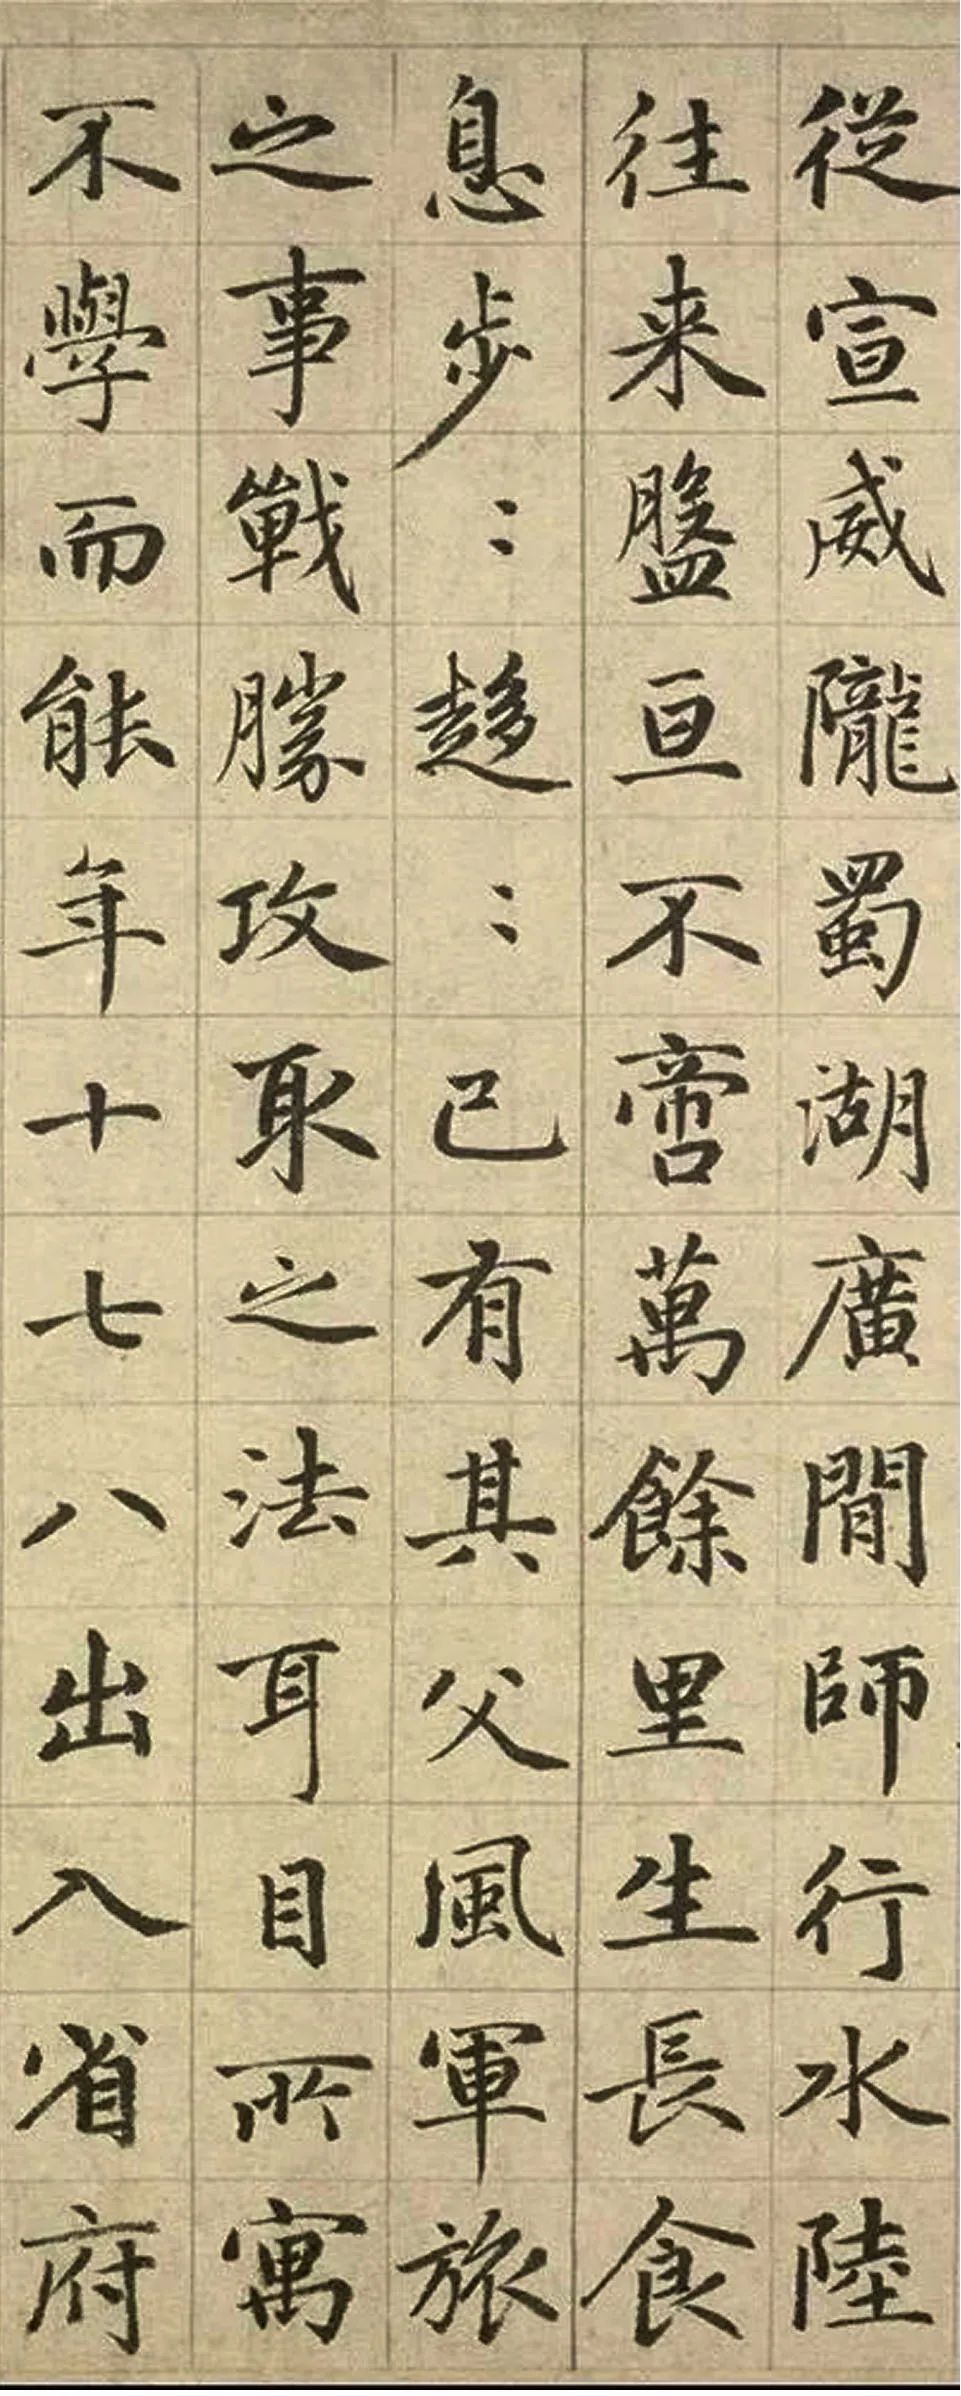 從宣威隴蜀湖廣間師行水陸
往来盤亘不啻萬餘里生長食
息步〻趍〻已有其父風軍旅
之事戰勝攻取之法耳目所寓
不學而能年十七八出入省府